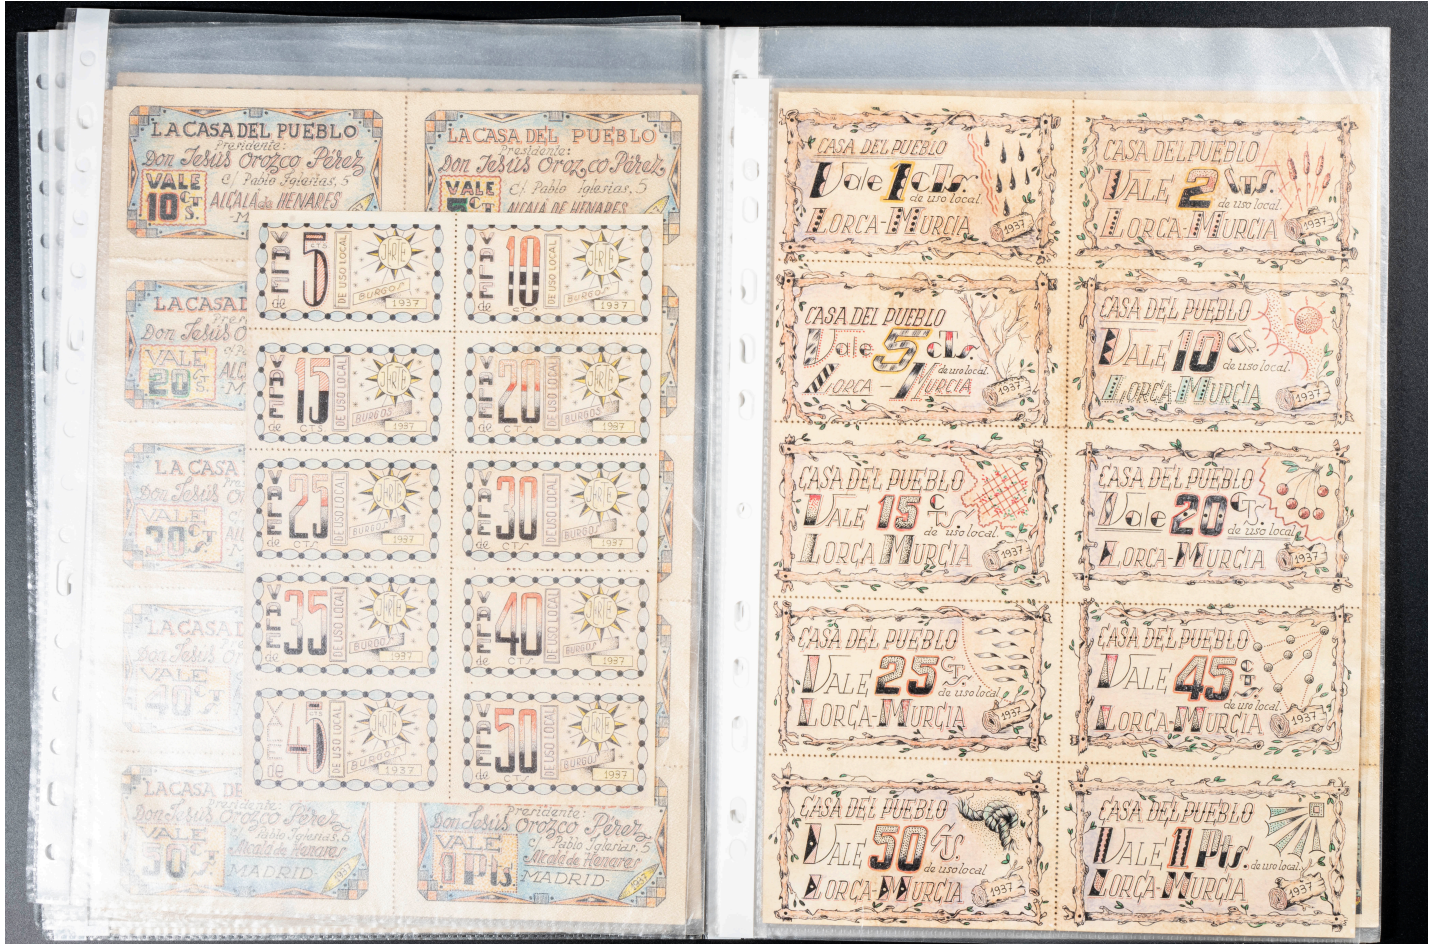 LA CASA DEL PUEBLO
Presidente:
Don Jesús Orozco Pérez
C/ Pablo Iglesias, 5
VALE
10 CTS.
ALCALÁ de HENARES
-M
LA CASA DEL PUEBLO
Presidente:
Don Jesús Orozco Pérez
C/ Pablo Iglesias, 5
VALE
5 CT
ALCALÁ DE HENARES
LA CASA D
Pres
Don Jesús O
VALE
20 CTS.
ALC
M
LA CASA
Pre
Don Jesús O
VALE
30 CTS
LA CASA
Don Jesús
VALE
40 CTS
LA CASA DE
Presidente:
Don Jesús Orozco Pérez
Pablo Iglesias, 5
VALE
50 CTS
Alcalá de Henares
MADRID-
1937
Presidente:
Don Jesús Orozco Pérez
C/ Pablo Iglesias, 5
VALE
1 Pts
Alcalá de Henares
MADRID-
1937
VALE de 5 CTS
DE USO LOCAL
BURGOS
1937
VALE de 10 CTS
DE USO LOCAL
BURGOS
1937
VALE de 15 CTS.
DE USO LOCAL
BURGOS
1937
VALE de 20 CTS.
DE USO LOCAL
BURGOS
1937
VALE de 25 CTS
DE USO LOCAL
BURGOS
1937
VALE de 30 CTS
DE USO LOCAL
BURGOS
1937
VALE de 35
DE USO LOCAL
BURGOS
1937
VALE de 40 CTS.
DE USO LOCAL
BURGOS
1937
VALE de 45
DE USO LOCAL
BURGOS
1937
VALE de 50 CTS
DE USO LOCAL
BURGOS
1937
CASA DEL PUEBLO
Vale 1 CTS.
de uso local.
LORCA-MURCIA
1937
CASA DEL PUEBLO
VALE 2 CTS.
de uso local.
LORCA-MURCIA
1937
CASA DEL PUEBLO
Vale 5 CTS.
de uso local.
LORCA-MURCIA
1937
CASA DEL PUEBLO
VALE 10 CTS.
de uso local.
LORCA-MURCIA
1937
CASA DEL PUEBLO
VALE 15 CTS.
de uso local.
LORCA MURCIA
1937
CASA DEL PUEBLO
Vale 20 CTS.
de uso local.
LORCA-MURCIA
1937
CASA DEL PUEBLO
VALE 25 CTS.
de uso local.
LORCA-MURCIA
1937
CASA DEL PUEBLO
VALE 45 CTS.
de uso local.
LORCA-MURCIA
1937
CASA DEL PUEBLO
VALE 50 CTS.
de uso local
LORCA-MURCIA
1937
CASA DEL PUEBLO
VALE 1 Pts.
de uso local.
LORCA-MURCIA
1937